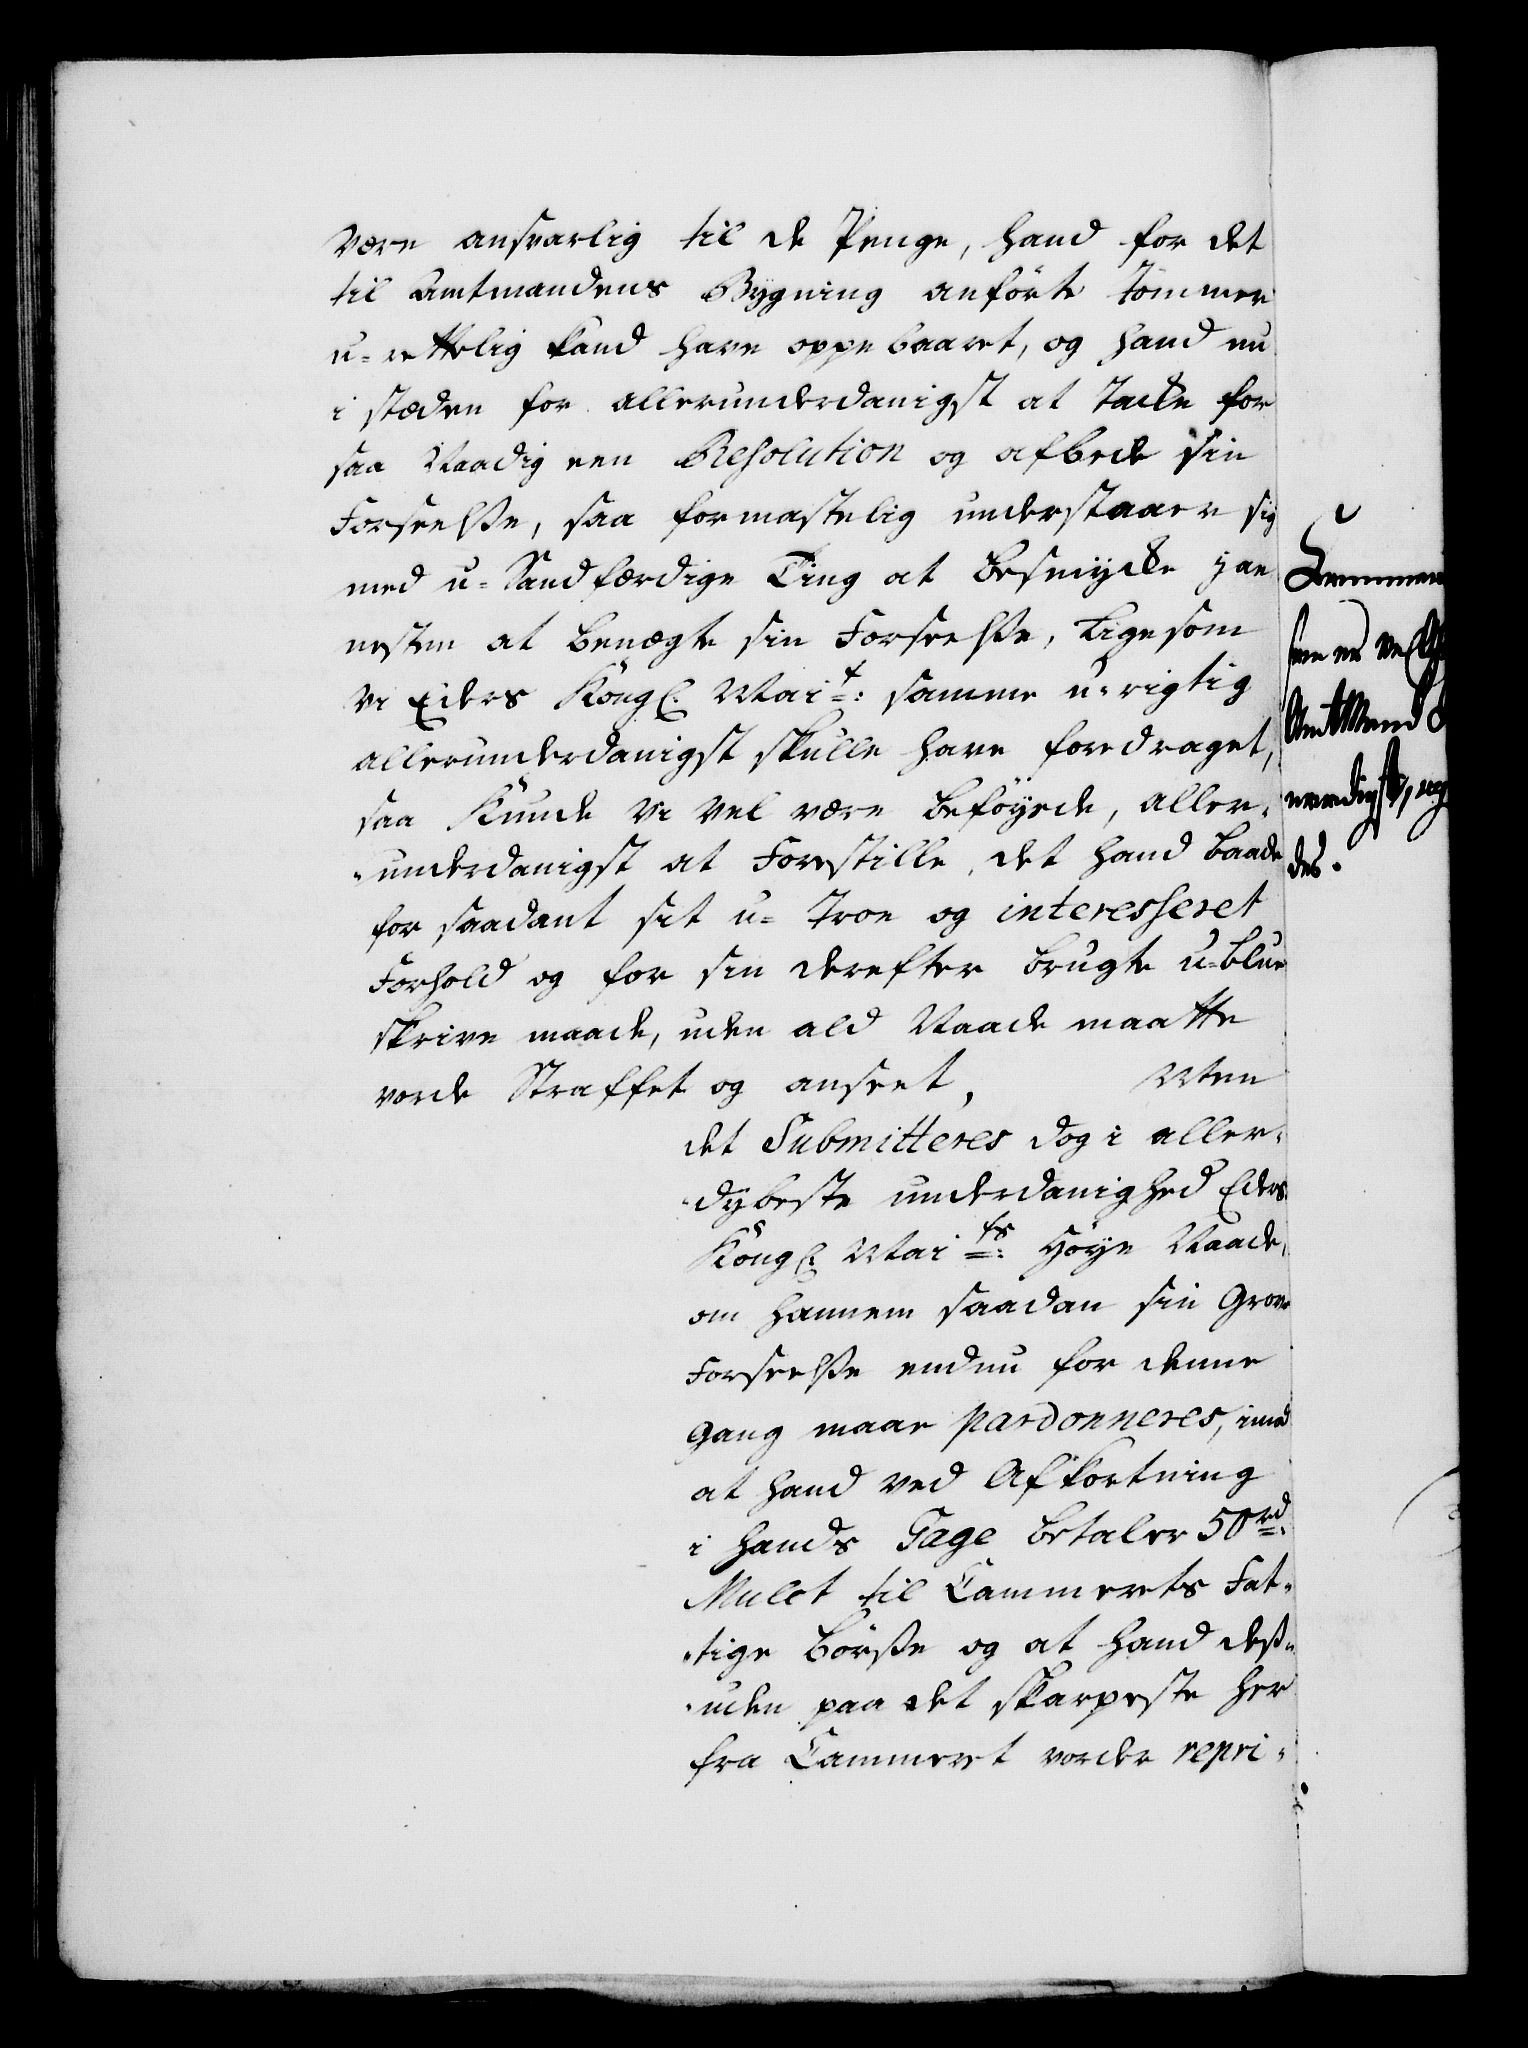 være ansvarlig til de Penge, hand for det
til Amtmandens Bygning anførte Tømmer
u-rettelig kand have oppebaaret, og hand nu
i stæden for allerunderdanigst at Tacke for
saa Naadig een Resolution og afbede sin
Forseelße, saa formastelig understaaer sig
med u-Sandfærdige Ting at besmycke ja
nesten at benægte sin Forseelße, ligesom
vi Eders Kongl. Mait: samme u-rigtig
allerunderdanigst skulle have foredraget,
saa kunde vi vel være beføyede, aller-
underdanigst at Forestille, det hand baade
for saadant sit u-Troe og interesseret
Forhold og for sin derefter brugte u-blue
skrive maade, uden ald Naade maatte
vorde Straffet og anseet, Men
det Submitteres dog i aller-
dybeste underdanighed Eders
Kongl. Maits: Høye Naade,
om hannem saadan sin Grove
Forseelße endnu for denne
Gang maae pardonneres, imod
at hand ved Afkortning
i hands Gage betaler 50 rd:
Mulct til Cammerets Fat-
tige Børße og at hand deß-
uden paa det skarpeste her
fra Cammeret vorder repri-